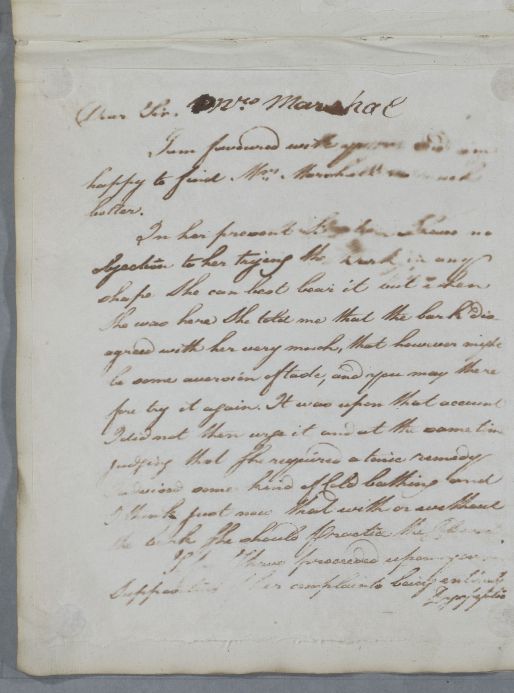 Dear Sir. Mrs Marshal
I am favoured with yours and am
happy to find Mrs Marshall so much
better.
In her present I have no
objection to her trying the bark in any
shape She can best bear it but when
She was here She told me that the bark dis
agreed with her very much, that however might
be some aversion of taste, and you may there
fore try it again. It was upon that account
I did not then urge it and at the same time
judging that She required a tonic remedy
advised some kind of Cold bathing and
I think just now that with or without
the bark She should practise the
I have proceeded upon your
Supposition her complaints being entirely
Dyspeptic